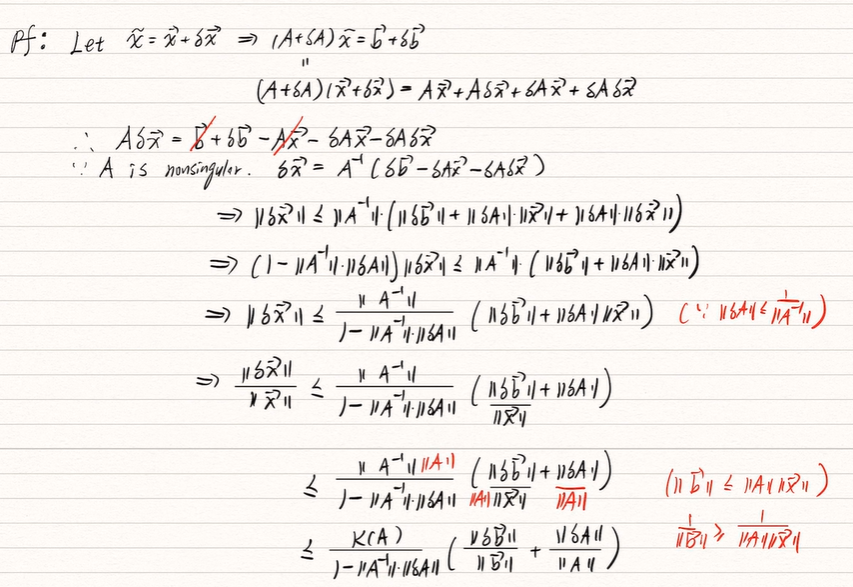 Pf: Let x̃ = x⃗ + δx⃗ ⇒ (A+δA) x̃ = b⃗ + δb⃗
=
(A+δA)(x⃗+δx⃗) = Ax⃗ + Aδx⃗ + δAx⃗ + δAδx⃗
∴ Aδx⃗ = b⃗ + δb⃗ - Ax⃗ - δAx⃗ - δAδx⃗
∵ A is nonsingular. δx⃗ = A⁻¹ (δb⃗ - δAx⃗ - δAδx⃗)
⇒ ||δx⃗|| ≤ ||A⁻¹||·(||δb⃗|| + ||δA||·||x⃗|| + ||δA||·||δx⃗||)
⇒ (1 - ||A⁻¹||·||δA||) ||δx⃗|| ≤ ||A⁻¹||·(||δb⃗|| + ||δA||·||x⃗||)
⇒ ||δx⃗|| ≤ ||A⁻¹|| / (1 - ||A⁻¹||·||δA||) (||δb⃗|| + ||δA|| ||x⃗||) (∵ ||δA|| ≤ 1/||A⁻¹||)
⇒ ||δx⃗|| / ||x⃗|| ≤ ||A⁻¹|| / (1 - ||A⁻¹||·||δA||) (||δb⃗|| / ||x⃗|| + ||δA||)
≤ ||A⁻¹|| ||A|| / (1 - ||A⁻¹||·||δA||) (||δb⃗|| / (||A|| ||x⃗||) + ||δA|| / ||A||) (||b⃗|| ≤ ||A|| ||x⃗||)
≤ K(A) / (1 - ||A⁻¹||·||δA||) (||δb⃗|| / ||b⃗|| + ||δA|| / ||A||) 1/||b⃗|| ≥ 1/(||A|| ||x⃗||)